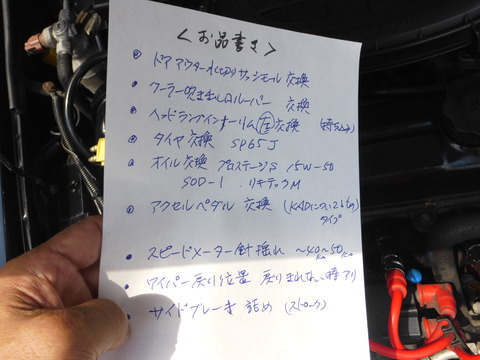 ＜お品書き＞
ドアアウター水切りサッシモール 交換
クーラー吹き出し口ルーバー 交換
ヘッドランプインナーリム 左 交換
タイヤ交換 SP65J
オイル交換 プロステージS 15W-50
SOD-1 . リキテックM
アクセルペダル 交換 (KADについてるもの
タイプ
スピードメーター針揺れ 〜40〜50
ワイパー戻り位置 戻りきれない時アリ
サイドブレーキ 詰め (ストローク)